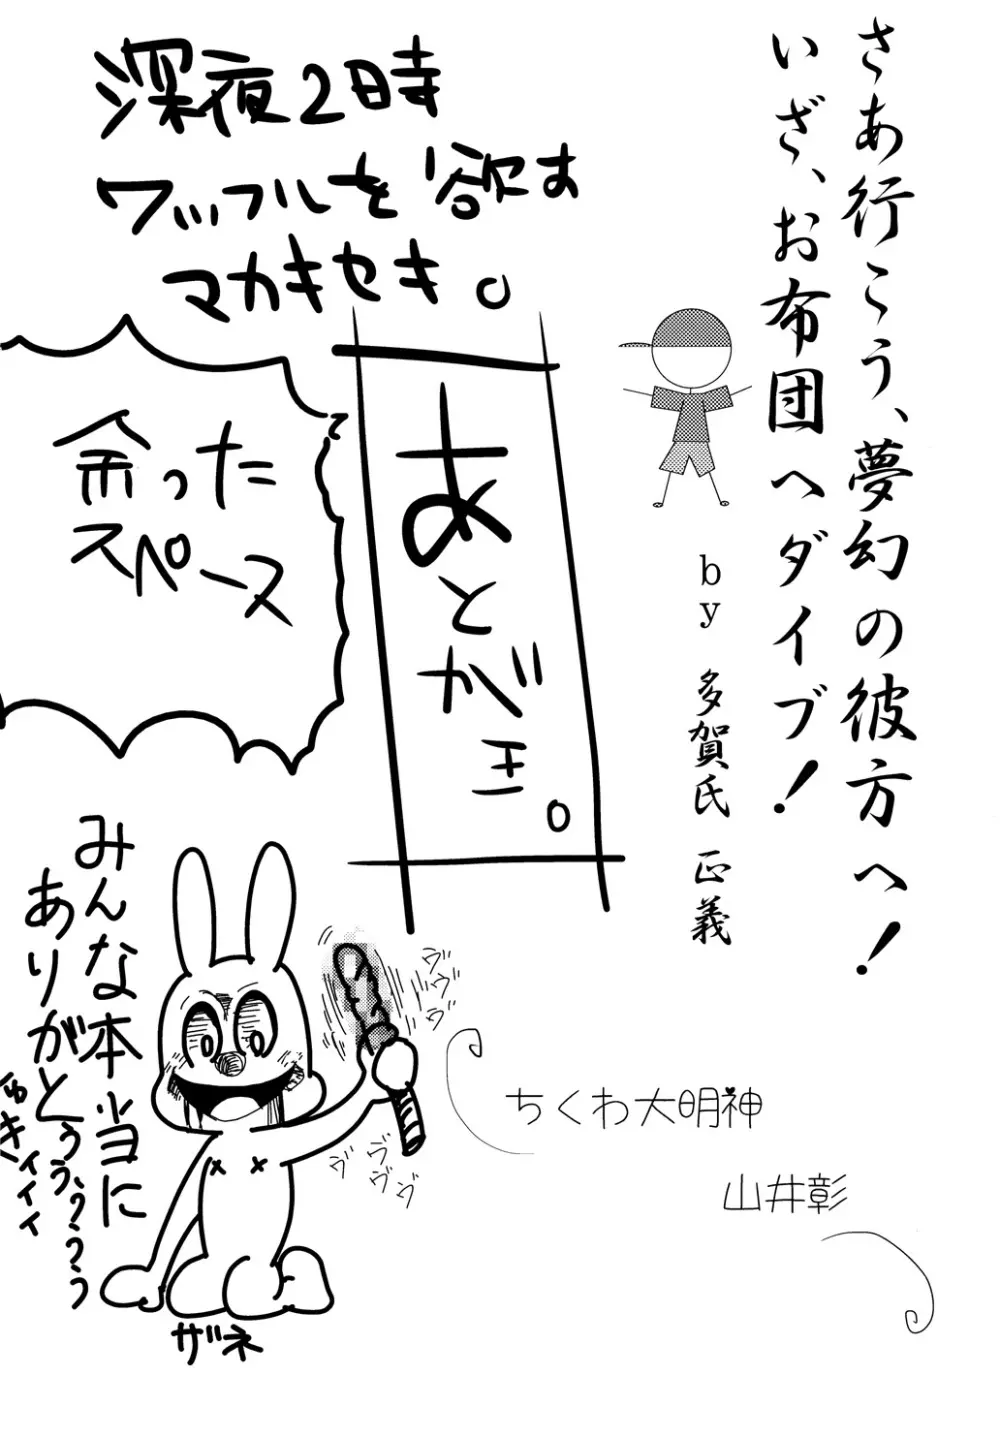 さあ行こう、夢幻の彼方へ！
いざ、お布団へダイブ！
by 多賀氏 正義
深夜2時
ワッフルを欲す
マカキセキ。
あとがき。
余った
スペース
みんな本当に
ありがとぅぅぅぅぅ
ザネ
ヴヴヴ
ヴヴ
ヴ
ヴヴ
ヴヴ
ちくわ大明神
山井彰